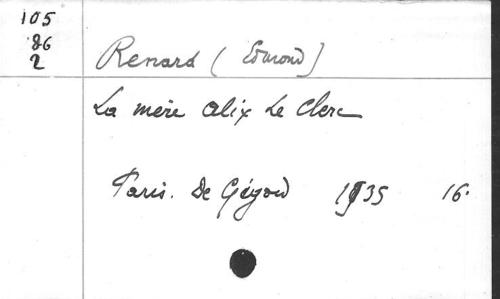 105
86
2
Renard (Edmond)
La mère Alix Le Clerc
Paris. De Gigord 1935 16.